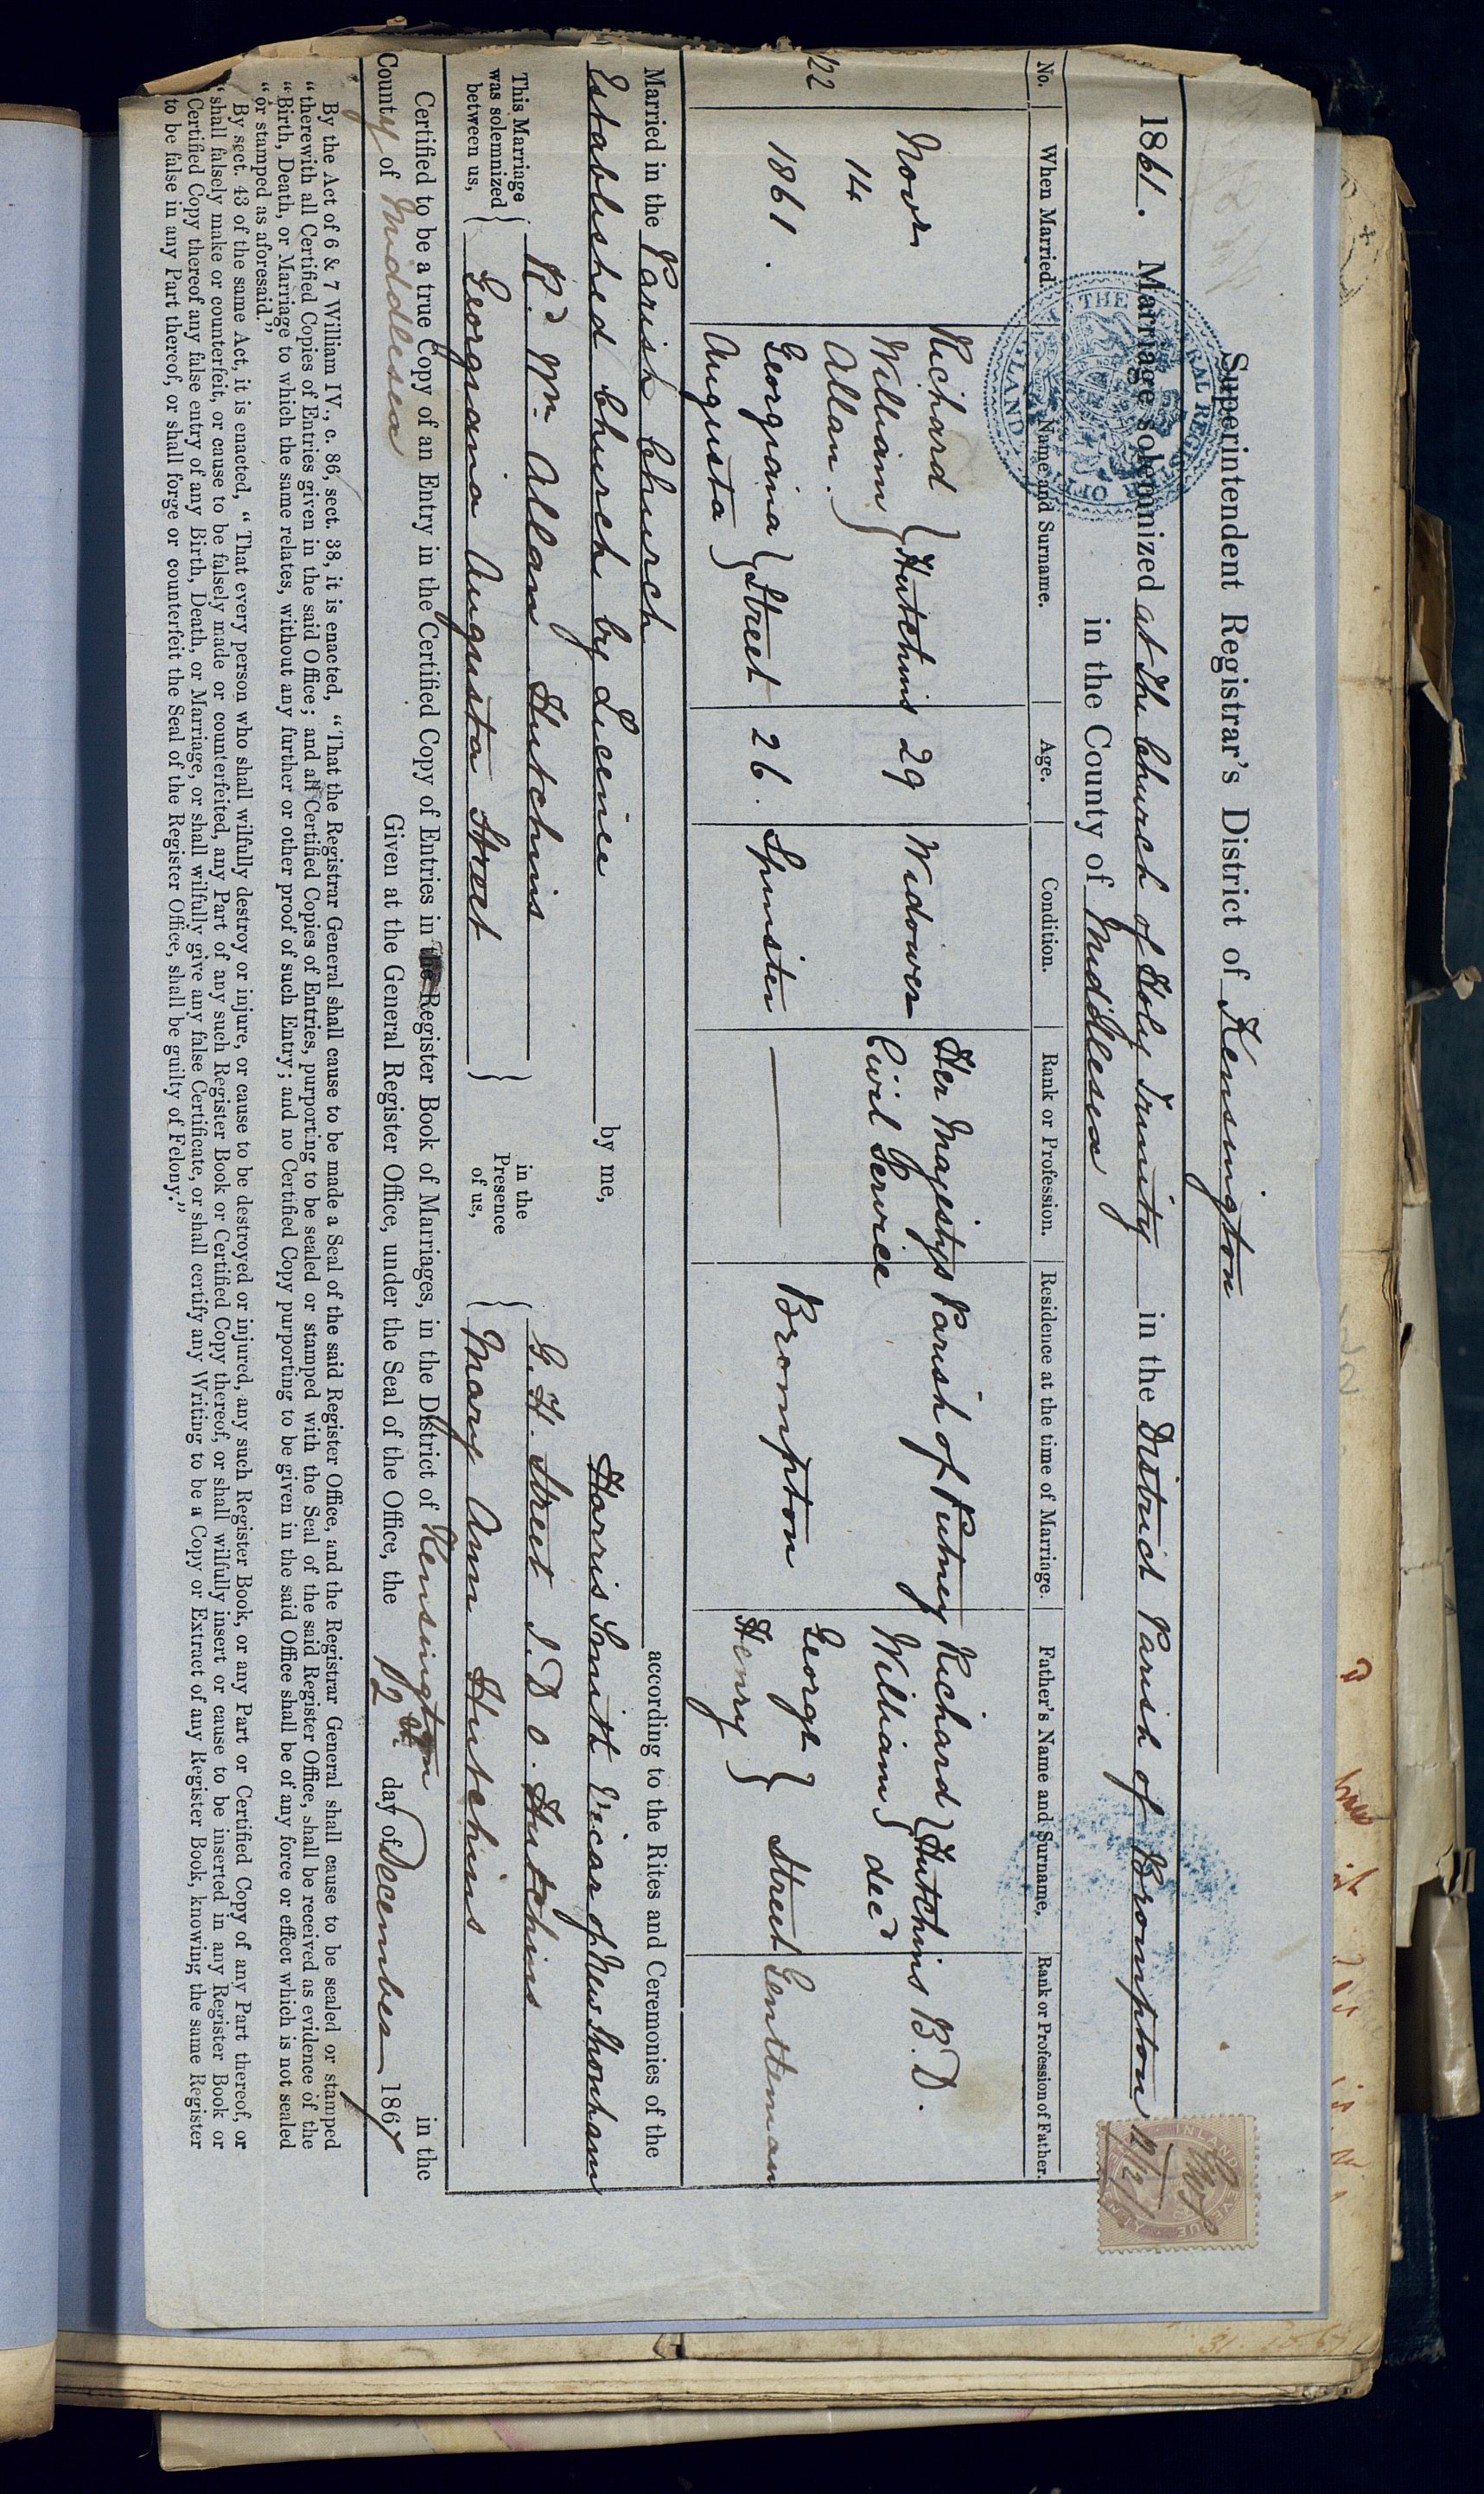 Superintendent Registrar's District of Kensington
1861. Marriage solemnized at the Church of Holy Trinity in the District Parish of Brompton
in the County of Middlesex
No. When Married. Name and Surname. Age. Condition. Rank or Profession. Residence at the time of Marriage. Father's Name and Surname. Rank or Profession of Father.
122 Novr. 14 1861. Richard William Allan. Hutchins 29 Widower Her Majestys Civil Service Parish of Putney Richard William Hutchins decd B.D.
Georgiana Augusta Street 26. Spinster — Brompton George Henry Street Gentleman
Married in the Parish Church according to the Rites and Ceremonies of the
Established Church by Licence by me, Harris Smith Vicar of New Shoreham
This Marriage was solemnized between us,
Rd. Wm. Allan Hutchins
Georgiana Augusta Street
in the Presence of us,
G. H. Street J. D. O. Hutchins
Mary Ann Hutchins
Certified to be a true Copy of an Entry in the Certified Copy of Entries in the Register Book of Marriages, in the District of Kensington in the
County of Middlesex Given at the General Register Office, under the Seal of the Office, the 12th. day of December 1867
By the Act of 6 & 7 William IV., c. 86, sect. 38, it is enacted, "That the Registrar General shall cause to be made a Seal of the said Register Office, and the Registrar General shall cause to be sealed or stamped
"therewith all Certified Copies of Entries given in the said Office; and all Certified Copies of Entries, purporting to be sealed or stamped with the Seal of the said Register Office, shall be received as evidence of the
"Birth, Death, or Marriage to which the same relates, without any further or other proof of such Entry; and no Certified Copy purporting to be given in the said Office shall be of any force or effect which is not sealed
"or stamped as aforesaid."
By sect. 43 of the same Act, it is enacted, "That every person who shall wilfully destroy or injure, or cause to be destroyed or injured, any such Register Book, or any Part or Certified Copy of any Part thereof, or
"shall falsely make or counterfeit, or cause to be falsely made or counterfeited, any Part of any such Register Book or Certified Copy thereof, or shall wilfully insert or cause to be inserted in any Register Book or
Certified Copy thereof any false entry of any Birth, Death, or Marriage, or shall wilfully give any false Certificate, or shall certify any Writing to be a Copy or Extract of any Register Book, knowing the same Register
to be false in any Part thereof, or shall forge or counterfeit the Seal of the Register Office, shall be guilty of Felony."